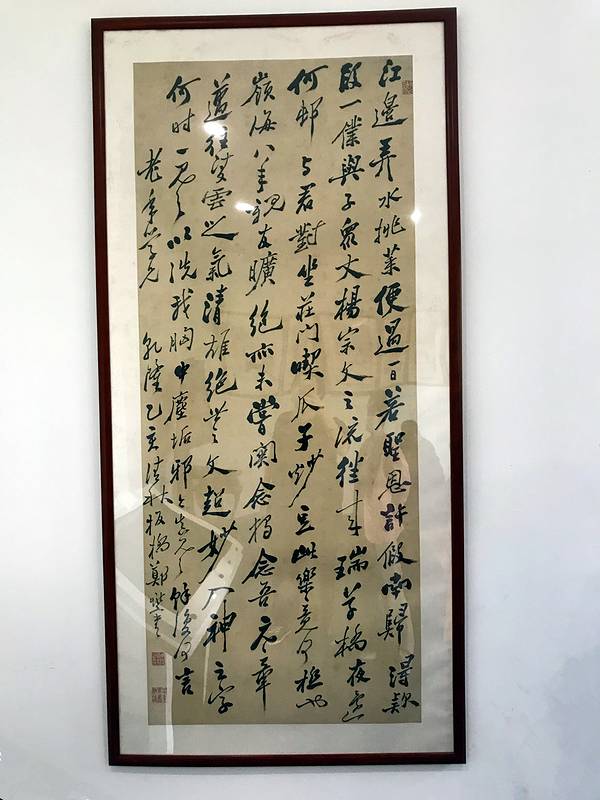 江邊弄水挑菜便過一日若聖恩許假南歸得款
段一僕與子衆丈楊宗文之流往來瑞草橋夜還
何邨与君對坐莊門喫瓜子炒豆此樂竟極也
嶺海八年親友曠絕亦未嘗關念獨念吾元章
邁往凌雲之氣清雄絕世之文超妙入神之字
何時一見之以洗我胸中塵垢邪今真見之餘復何言
老年學兄 乾隆乙亥清秋板橋鄭燮書